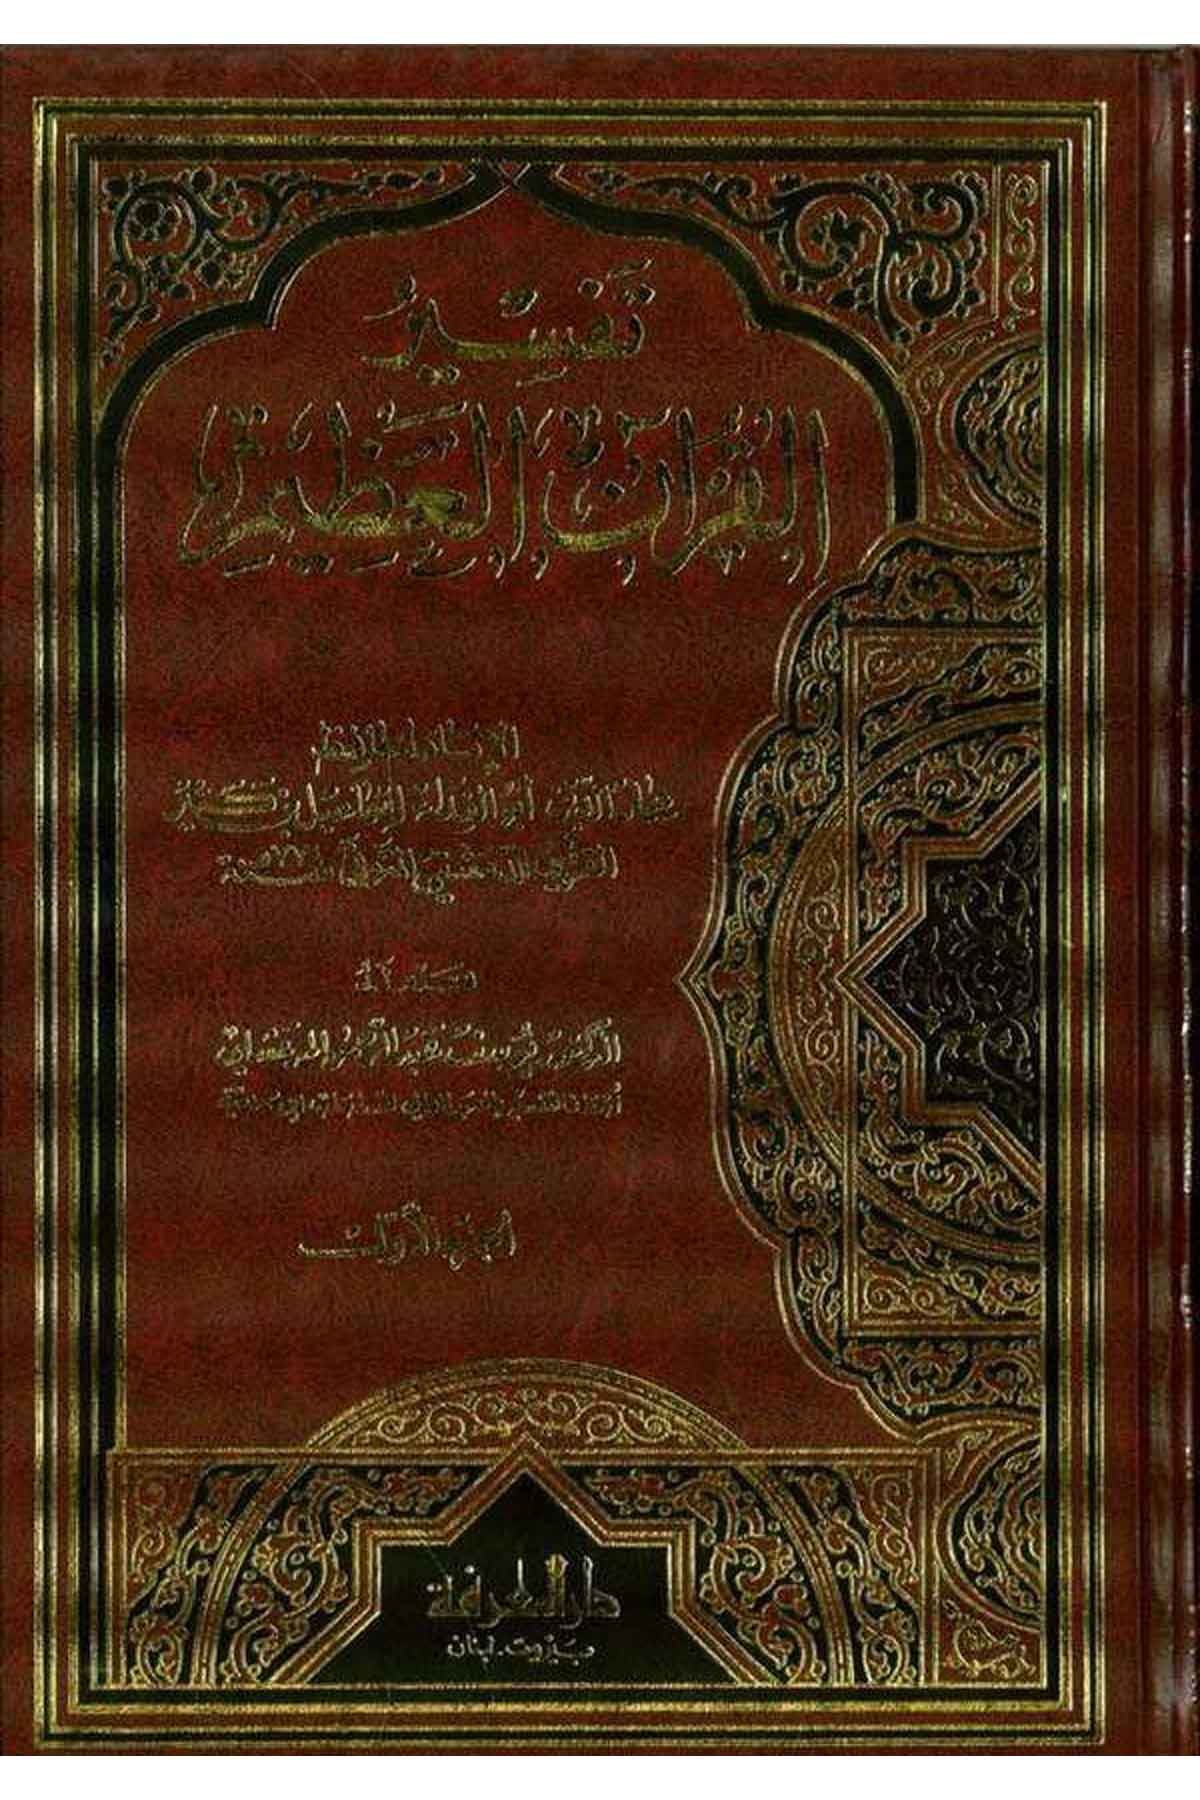 تفسير
القرآن العظيم
للإمام الحافظ
عماد الدين أبو الفداء إسماعيل بن كثير
القرشي الدمشقي المتوفى سنة
قدم له
الدكتور يوسف عبد الرحمن المرعشلي
الجزء الأول
دار المعرفة
بيروت. لبنان